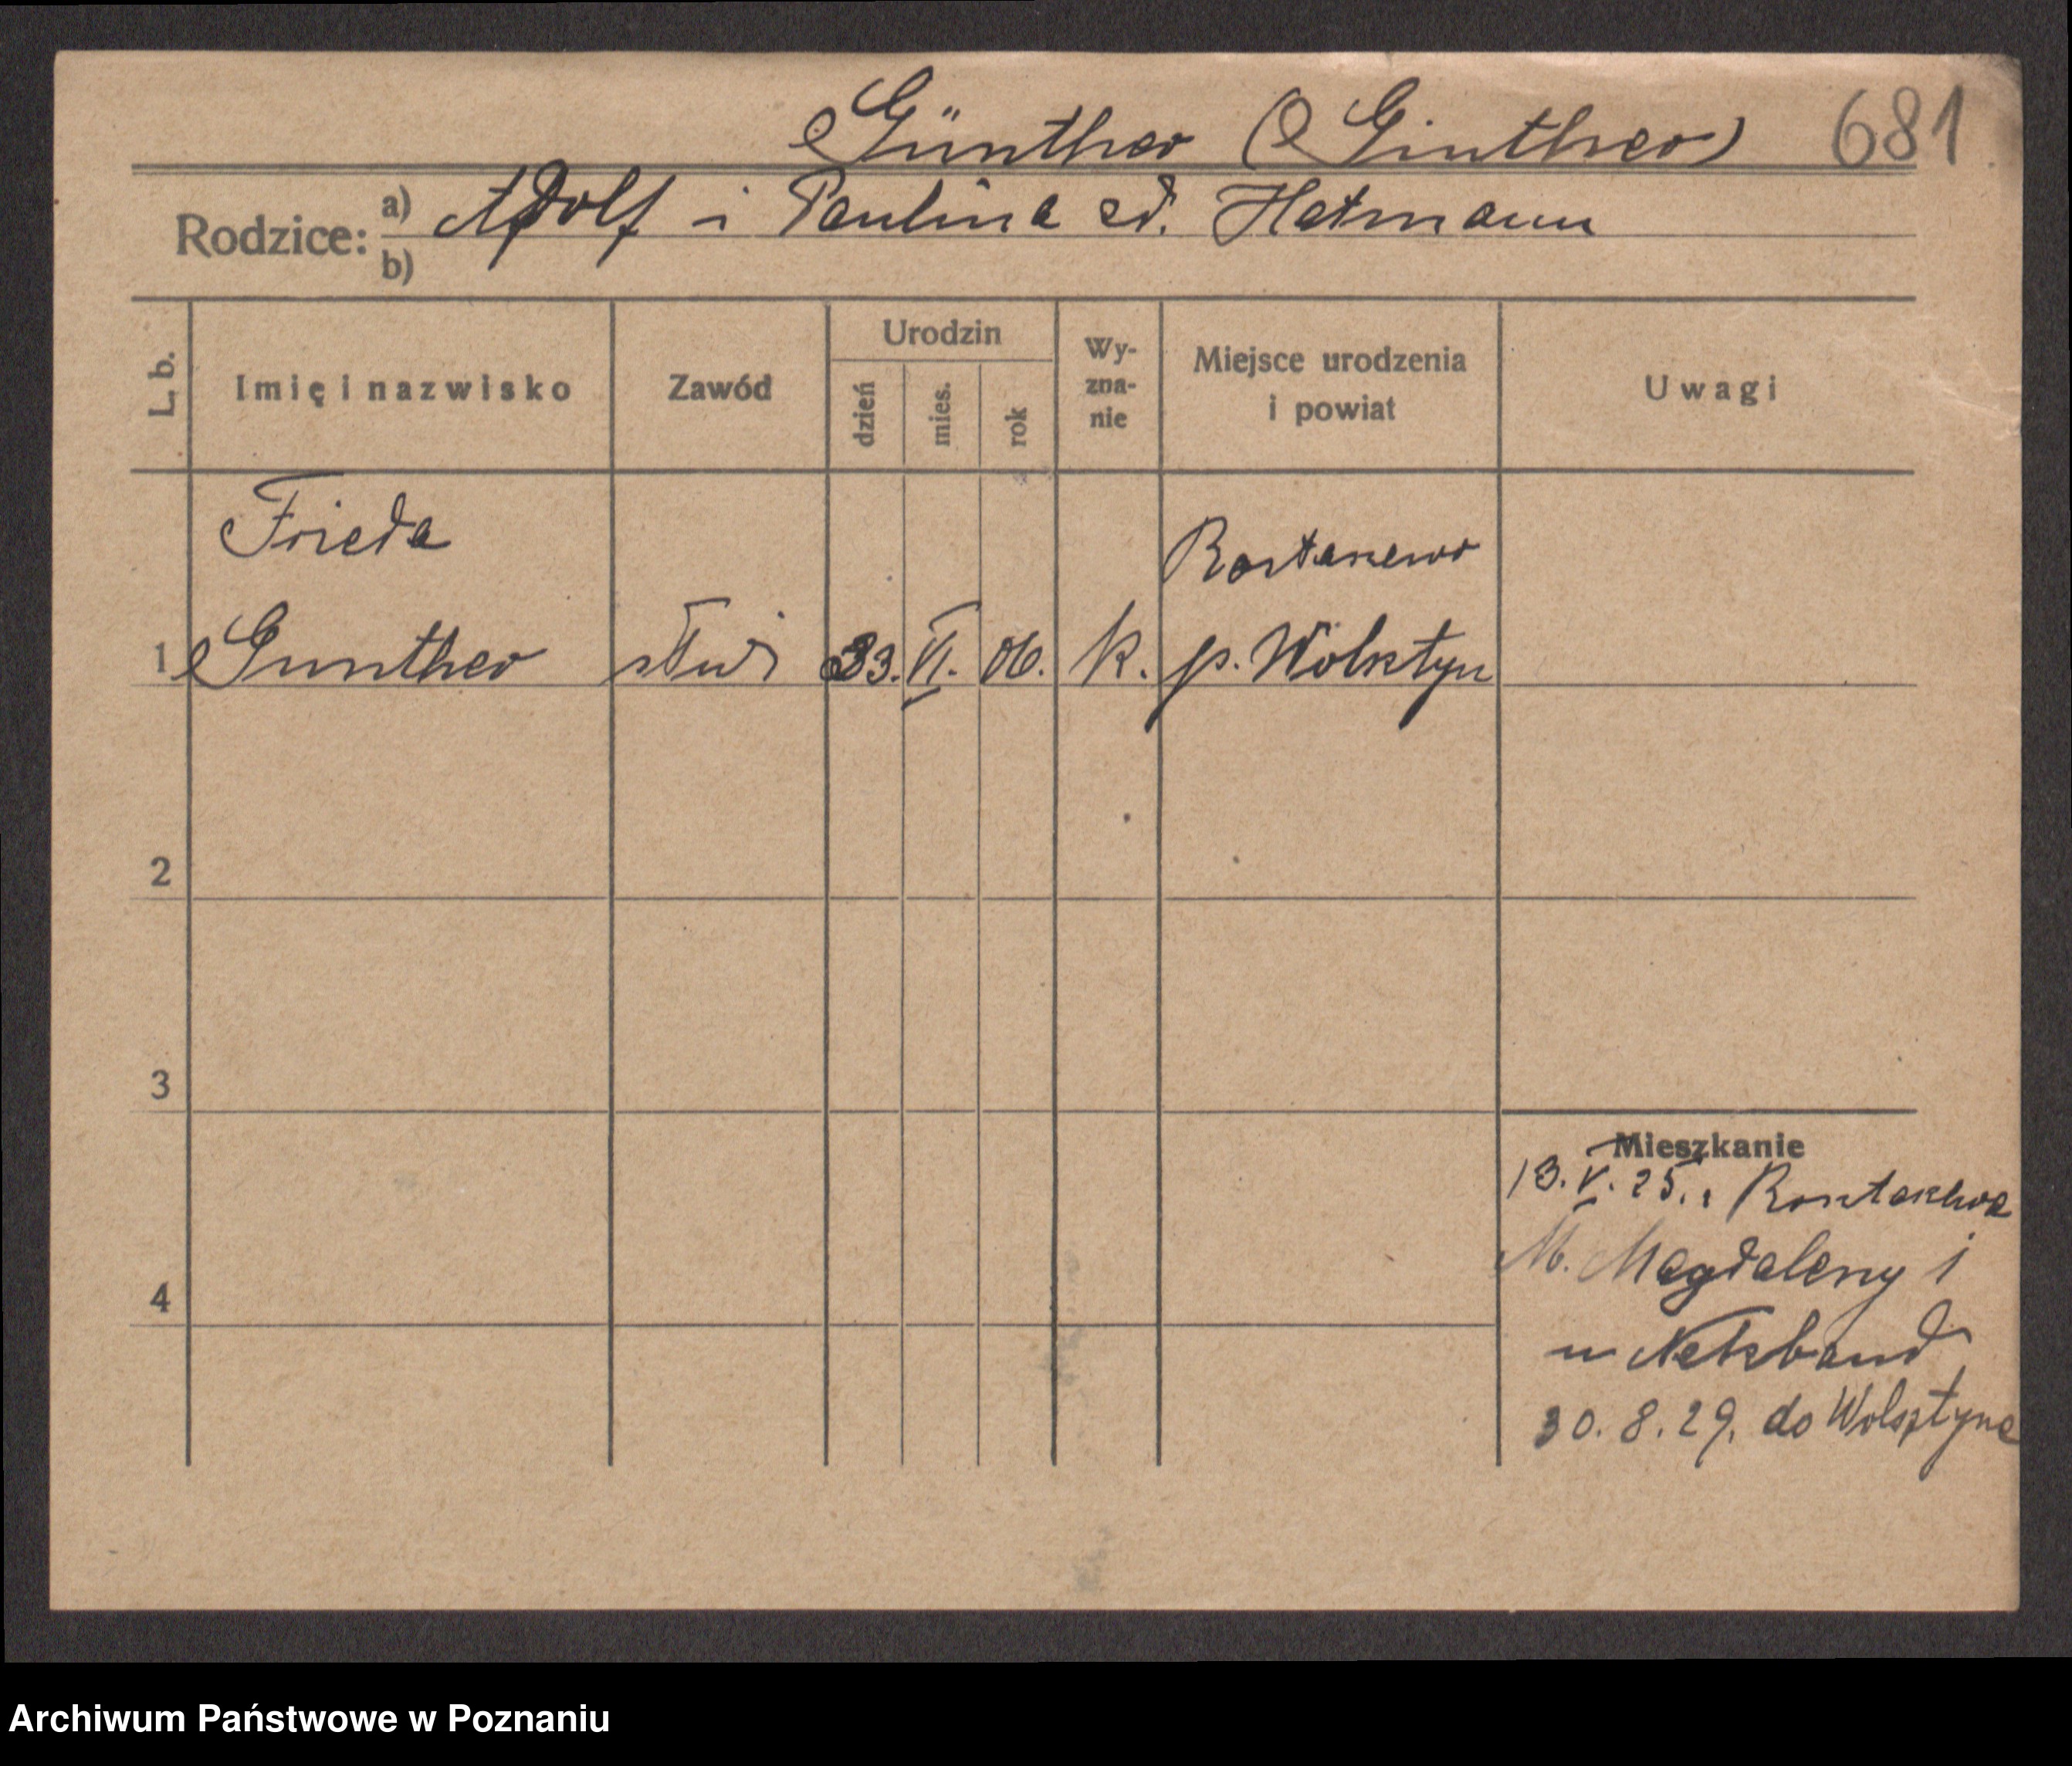 Günther (Ginther) 681
Rodzice: a) Adolf i Paulina zd. Hatmann
b)
L. b. Imię i nazwisko Zawód Urodzin dzień mies. rok Wy-zna-nie Miejsce urodzenia i powiat Uwagi
Frieda
1 Gunther VI. 06. K. p. Wolsztyn
2
3
Mieszkanie
13. V. 25.
4 M. Magdaleny 1
u
30. 8. 29. do Wolsztyna
Archiwum Państwowe w Poznaniu